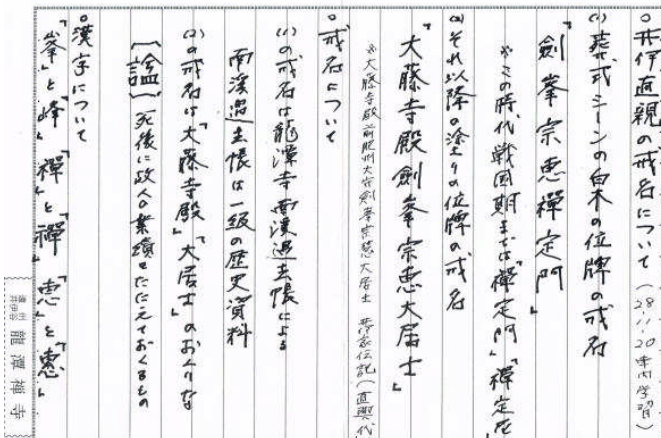 ○井伊直親の戒名について(28.11.20寺内学習)
(1)葬式シーンの白木の位牌の戒名
「剣峯宗恵禅定門」
※この時代戦国期までは「禅定門」「禅定尼」
(2)それ以降の塗りの位牌の戒名
「大藤寺殿剣峯宗恵大居士」
※大藤寺殿前肥州太守剣峯宗慧大居士 井家伝記(直興代
○戒名について
(1)の戒名は龍潭寺南渓過去帳による
南渓過去帳は一級の歴史資料
(2)の戒名は「大藤寺殿」「大居士」のおくりな
〔諡〕死後に故人の業績をたたえておくるもの
○漢字について
「峯」と「峰」「禅」と「禪」「恵」と「惠」
遠州井伊谷 龍潭禅寺